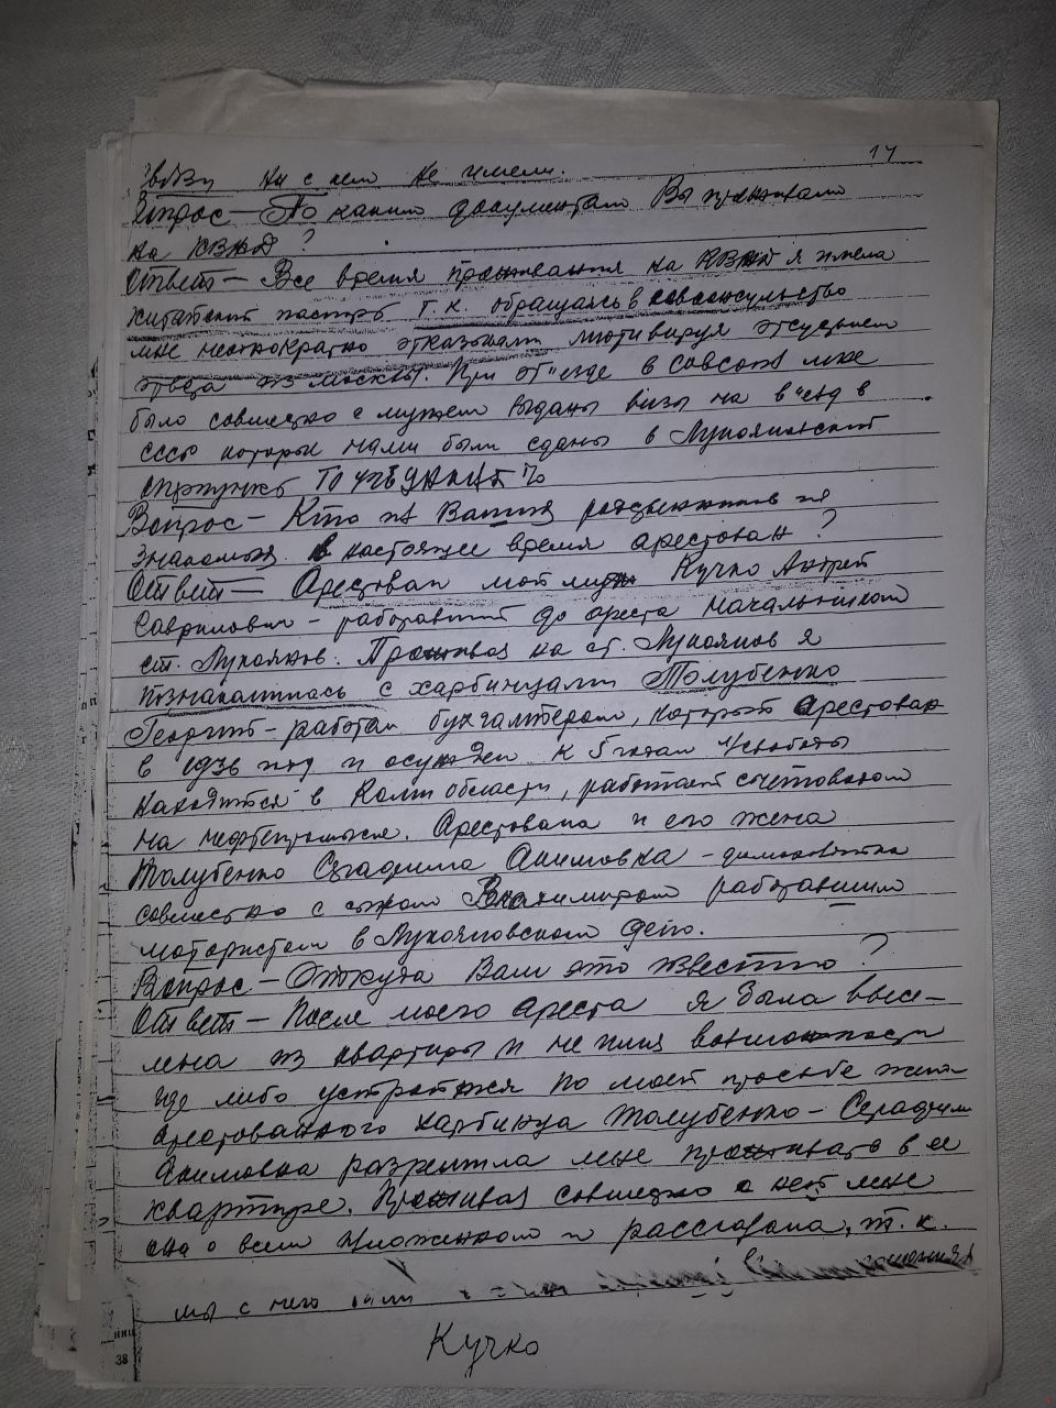 14
связи ни с кем не имели.
Вопрос — По каким документам Вы проживали
на КВЖД?
Ответ — Все время проживания на КВЖД я имела
китайский паспорт т.к. обращаясь в совконсульство
мне неоднократно отказывали мотивируя отсутствием
ответа из Москвы. При от"езде в совсоюз мне
было совместно с мужем выданы визы на в"езд в
СССР которые нами были сданы в Лукояновский

Вопрос — Кто из Ваших родственников и
знакомых в настоящее время арестован?
Ответ — Арестован мой муж Кучко Андрей
Гаврилович — работавший до ареста начальником
ст. Лукоянов. Проживая на ст. Лукоянов я
познакомилась с харбинцами Толубенко
Георгий — работал бухгалтером, который арестован
в 1936 году и осужден к 5 годам
находится в Коми области, работает счетоводом
на нефтепромысле. Арестована и его жена
Толубенко Серафима Акимовна — домохозяйка
совместно с сыном Владимиром работавшим
мотористом в Лукояновском депо.
Вопрос — Откуда Вам это известно?
Ответ — После моего ареста я была высе-
лена из квартиры и не имея возможности
где либо устроится по моей просьбе жена
арестованного харбинца Толубенко — Серафима
Акимовна разрешила мне проживать в ее
квартире. Проживая совместно с ней мне
она о всем изложенном и рассказала, т.к.
мы с него были
Кучко
38